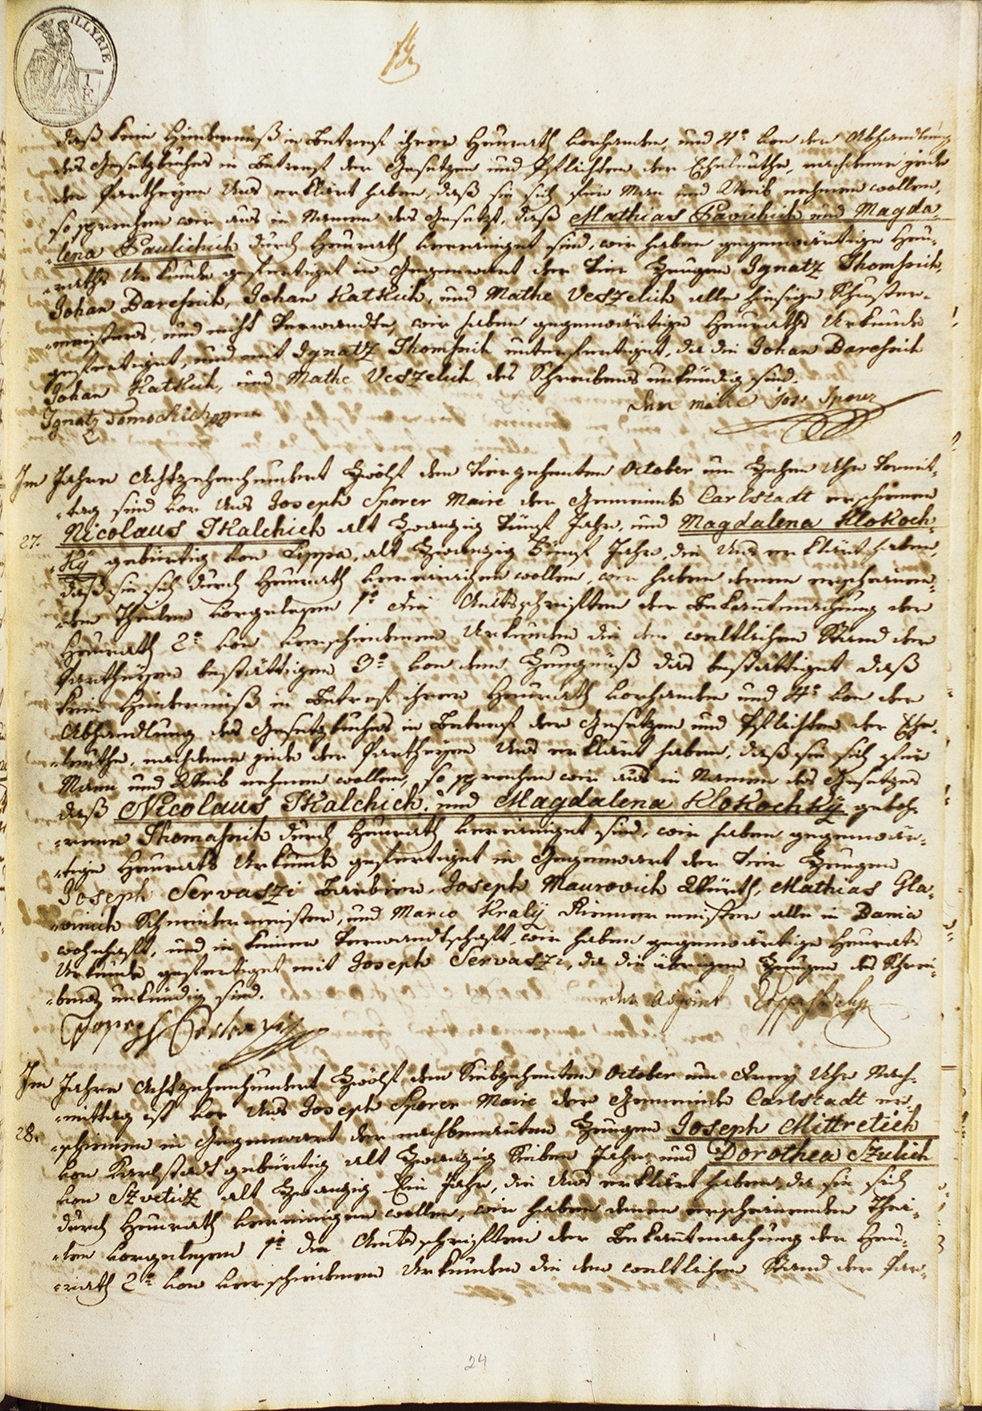 ILLYRIE
daß kein Hinderniß in Betreff ihrer Heurath vorhanden, und 4º von der Abhandlung
des Gesetzbuches in Betreff der Gesetzen und Pflichten der Eheleuthe, nachdeme jede
der Partheyen Uns erklärt haben, daß sie sich für Man und Weib nehmen wollen,
so sprechen wir aus in Namen des Gesetzes, daß Mathias Pavichich und Magda-
-lena Paulichich durch Heurath vereiniget sind, wir haben gegenwärtige Heu-
-raths Urkunde gefertiget in Gegenwart der vier Zeugen Ignatz Thomschich,
Johan Barchich, Johan Katkich, und Mathe Veszelich alle hiesige Schuster-
-meisters, und nicht Verwandte, wir haben gegenwärtige Heuraths Urkunde
gefertiget, und mit Ignatz Thomschich unterfertiget, da die Johan Barchich
Johan Katkich, und Mathe Veszelich des Schreibens unkündig sind.
Ignatz Tomschich der maire Jos. Sporer
Im Jahre Achtzehenhundert Zwölf den Vierzehenten October um Zehen Uhr Vormit-
-tag sind vor Uns Joseph Sporer Maire der Gemeinde Carlstadt erschienen
27. Nicolaus Skalchich alt Zwanzig Fünf Jahr, und Magdalena Klokoch-
-ky gebürtig von Lippa, alt Zwanzig Fünf Jahr, die Uns erklärt haben,
daß sie sich durch Heurath vereinigen wollen, wir haben denen erscheinen-
-den Theilen vorgelesen 1º die Amtsschriften der Bekantmachung der
Heurath 2º von verschiedenen Urkunden die den weltlichen Stand der
Partheyen bestättigen 3º von dem Zeugniß das bestättiget daß
kein Hinderniß in Betref ihrer Heurath vorhanden und 4º von der
Abhandlung des Gesetzbuches in Betreff der Gesetzen und Pflichten der Ehe-
-leuthe, nachdeme jede der Partheyen Uns erklärt haben, daß sie sich für
Mann und Weib nehmen wollen, so sprechen wir aus in Namen des Gesetzes
daß Nicolaus Skalchich, und Magdalena Klokochky geboh-
-rene Thomaschich durch Heurath vereiniget sind, wir haben gegenwär-
-tige Heuraths Urkunde gefertiget in Gegenwart der vier Zeugen
Joseph Servaszi Barbier, Joseph Maurovich Würth, Mathias Gla-
-vinich Schneidermeister, und Marco Kraly Riemermeister alle in Bania
wohnhaft, und in keiner Verwandtschaft, wir haben gegenwärtige Heuraths
Urkunde gefertiget mit Joseph Servaszi, da die übrigen Zeugen des Schrei-
-bens unkündig sind. der Adjoint
Joseph Servaszi
Im Jahre Achtzehenhundert Zwölf den Siebzehenten October um Drey Uhr Nach-
-mittag ist vor Uns Joseph Sporer Maire der Gemeinde Carlstadt er-
28. -schienen in Gegenwart der nachbenanten Zeugen Joseph Mittretich
von Karlstadt gebürtig alt Zwanzig Sieben Jahr, und Dorothea Szulich
von Szvetitz alt Zwanzig Ein Jahr, die Uns erklärt haben, da sie sich
durch Heurath vereinigen wollen, wir haben denen erscheinenden Thei-
-len vorgelesen 1º die Amtsschriften der Bekantmachung der Heu-
-rath 2º von verschiedenen Urkunden die den weltlichen Stand der Par-
24